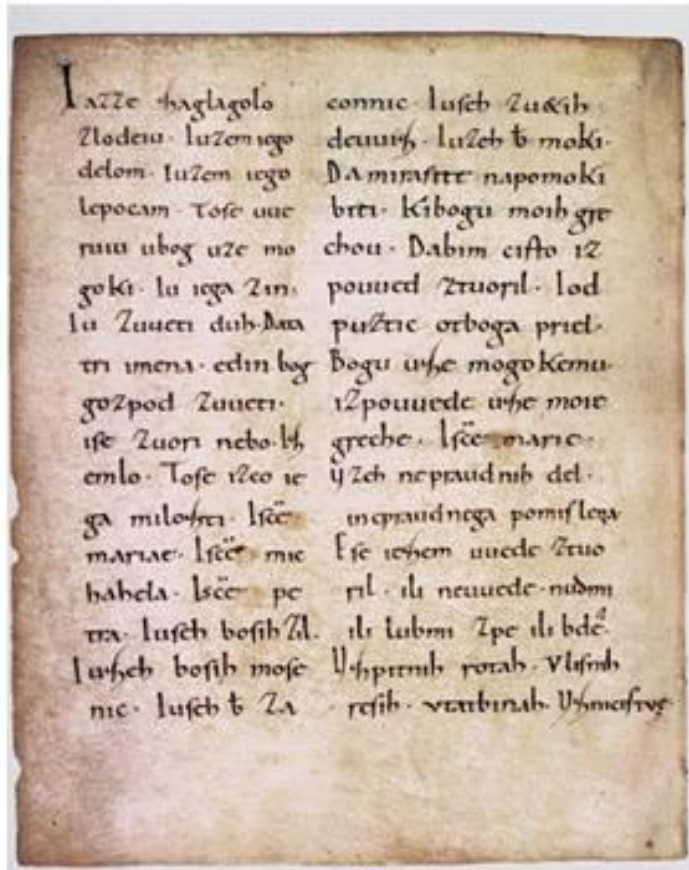 Iazze zaglagolo
zlodeiu. Iuzem iego
delom. Iuzem iego
lepocam. Tose uue
ruiu ubog uze mo
goki. Iu iega zin.
Iu zuueti duh. Data
tri imena. edin bog
gozpod zuueti.
ise zuori nebo. Iz
emlo. Tose izco ie
ga milozti. Isce
mariae. Isce mic
hahela. Isce pe
tra. Iuseh bosih zil.
Iuzeh bosih mose
nic. Iuseh b za
connic. Iuseh zu&ih
deuuiz. Iuzeh b moki.
Da mirasite napomoki
biti. Kibogu moih gre
chou. Dabim cisto iz
pouued ztuoril. Iod
puztic otboga priel.
Bogu uze mogokemu.
izpouuede uze moie
greche. Isce marie.
Vzeh nepraudnih del.
inepraudnega pomislena
Ese iezem uuede ztuo
ril. ili neuuede. nudmi
ili lubmi zpe ili bde.
Vzpitnih rotah. Vlisnih
resih. vtatbinah. Vznicistve